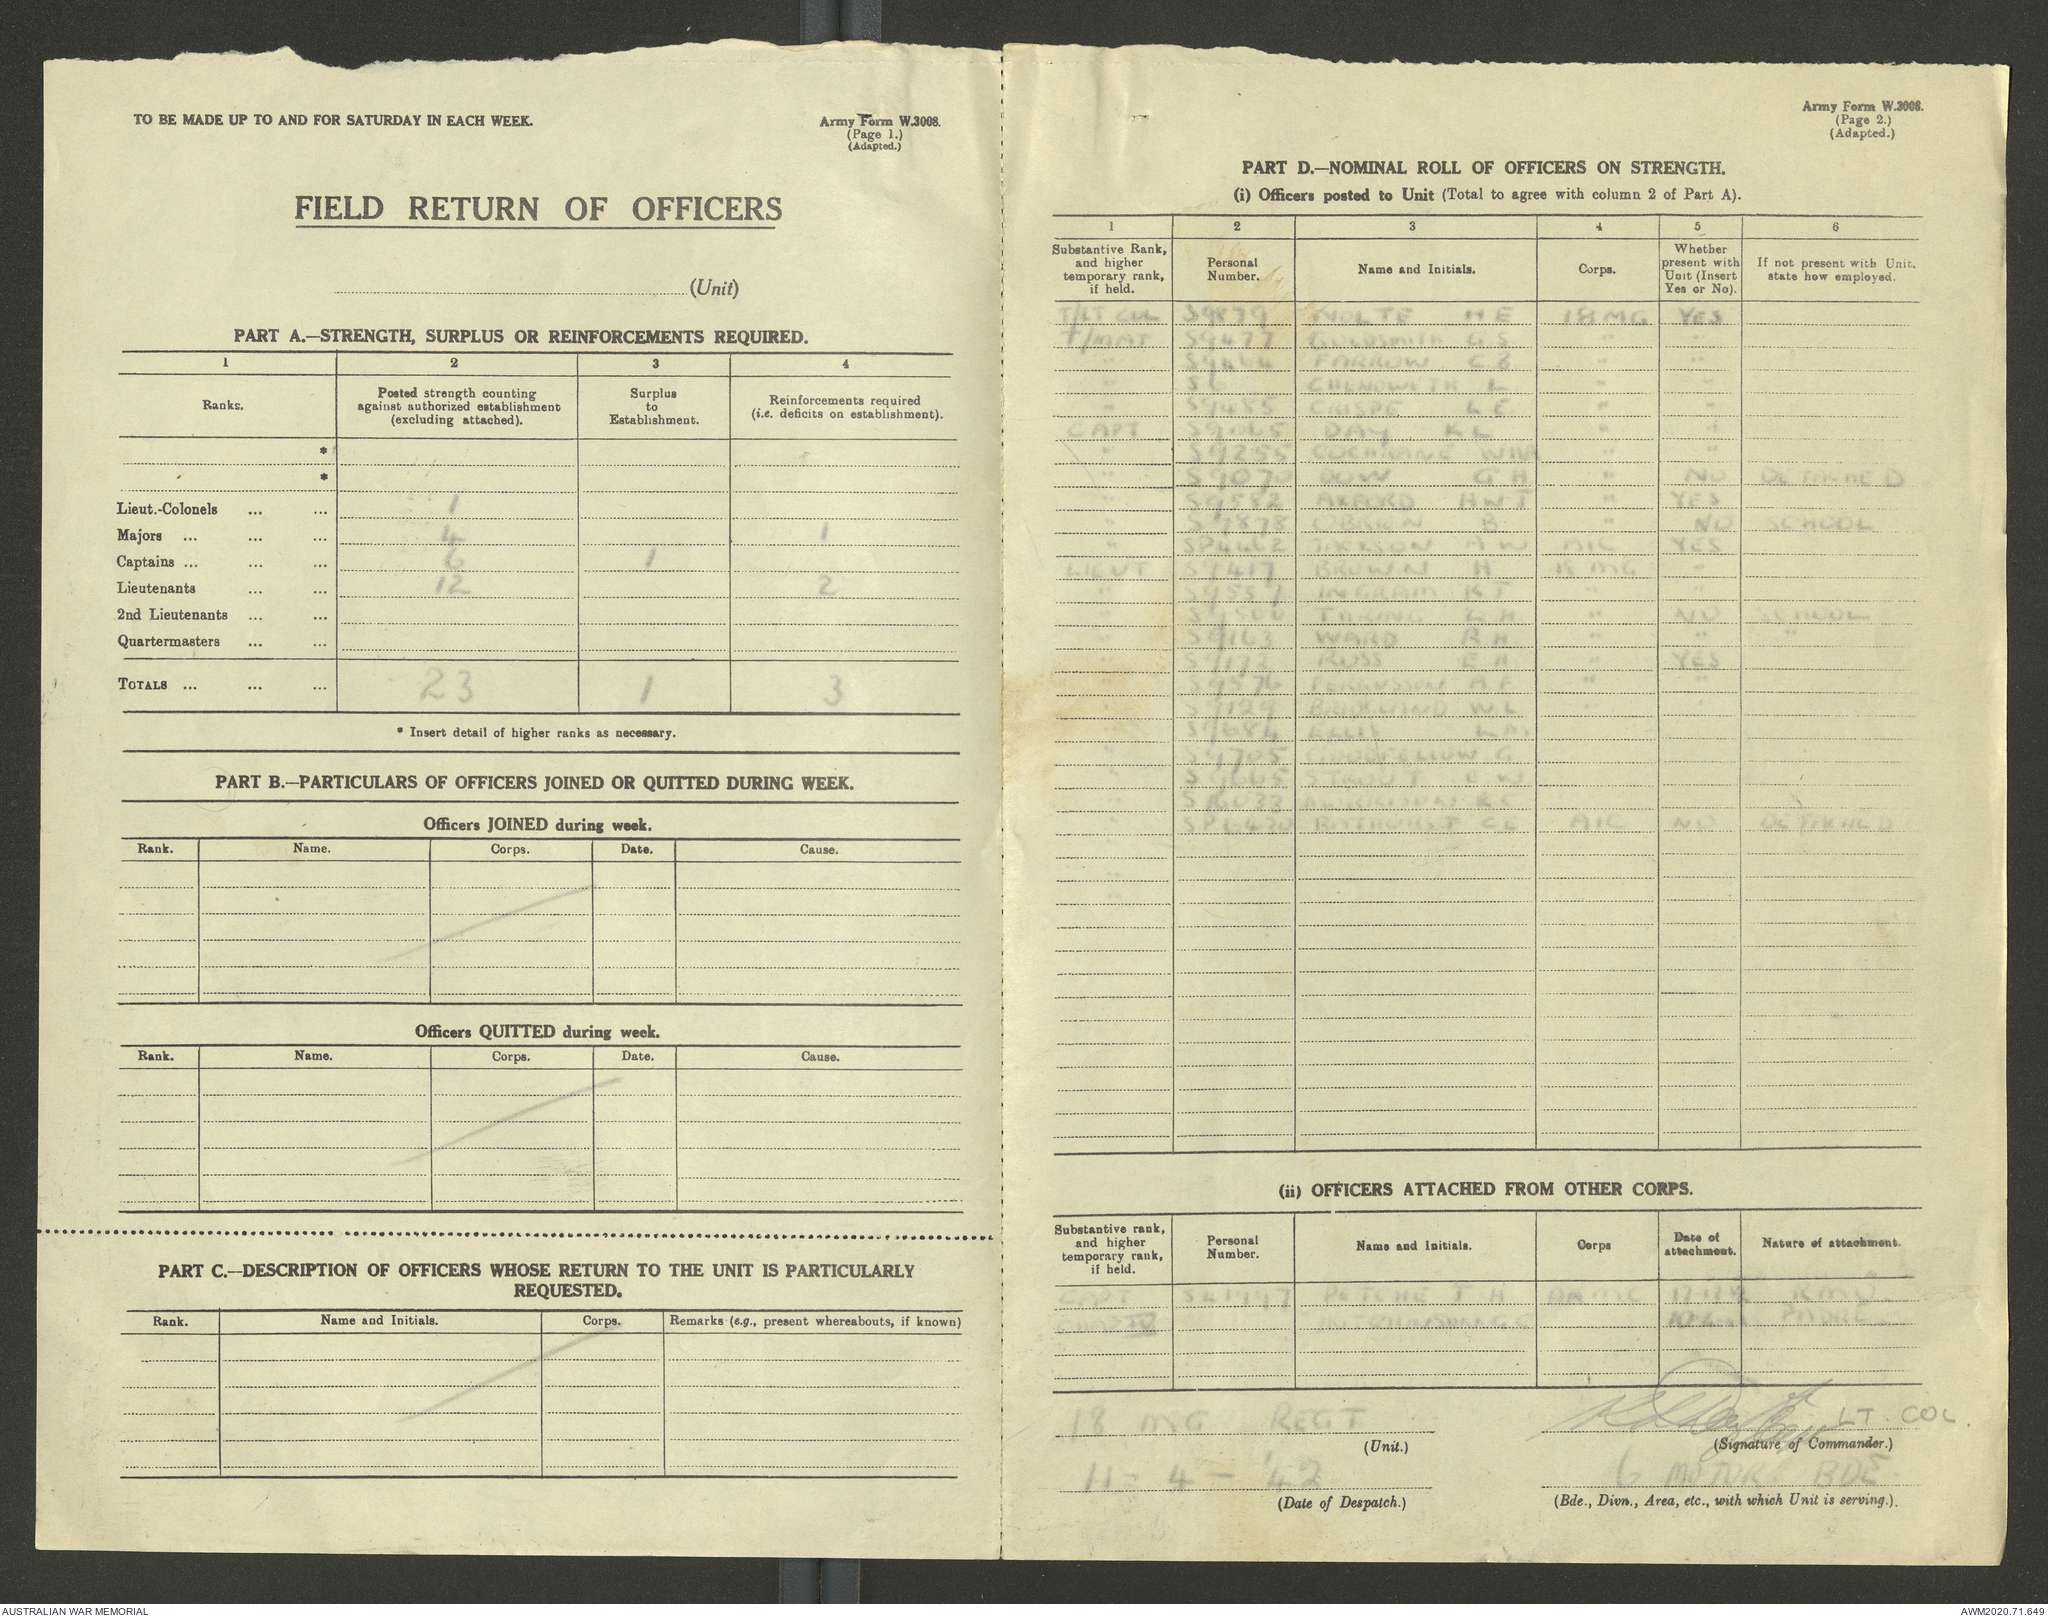 TO BE MADE UP TO AND FOR SATURDAY IN EACH WEEK.
Army Form W.3008.
(Page 1.)
(Adapted.)
FIELD RETURN OF OFFICERS
(Unit)
PART A.—STRENGTH, SURPLUS OR REINFORCEMENTS REQUIRED.
1 2 3 4
Ranks. Posted strength counting against authorized establishment (excluding attached). Surplus to Establishment. Reinforcements required (i.e. deficits on establishment).
*
*
Lieut.-Colonels ... ... 1
Majors ... ... ... 4 1
Captains ... ... ... 6 1
Lieutenants ... ... 12 2
2nd Lieutenants ... ...
Quartermasters ... ...
TOTALS ... ... ... 23 1 3
* Insert detail of higher ranks as necessary.
PART B.—PARTICULARS OF OFFICERS JOINED OR QUITTED DURING WEEK.
Officers JOINED during week.
Rank. Name. Corps. Date. Cause.
Officers QUITTED during week.
Rank. Name. Corps. Date. Cause.
PART C.—DESCRIPTION OF OFFICERS WHOSE RETURN TO THE UNIT IS PARTICULARLY
REQUESTED.
Rank. Name and Initials. Corps. Remarks (e.g., present whereabouts, if known)
Army Form W.3008.
(Page 2.)
(Adapted.)
PART D.—NOMINAL ROLL OF OFFICERS ON STRENGTH.
(i) Officers posted to Unit (Total to agree with column 2 of Part A).
1 2 3 4 5 6
Substantive Rank, and higher temporary rank, if held. Personal Number. Name and Initials. Corps. Whether present with Unit (Insert Yes or No). If not present with Unit, state how employed.
T/LT COL S9879 NOLTE H E 18 MG YES
T/MAJ S9477 GOLDSMITH G S " "
" S9464 FARROW C B " "
" S6 CHENOWETH L " "
" S9485 CRISPE L E " "
CAPT S9065 DAY K L " "
" S9255 COCHRANE " "
" S9070 DOW G H " NO DETACHED
" S9582 AXFORD H W J " YES
" S9878 OBRIEN B " NO SCHOOL
" SP4462 JACKSON A W AIC YES
LIEUT S9417 BROWN H 18 MG "
" S9559 INGRAM K T " "
" THRING G H " NO SCHOOL
" S9163 WARD R H " " "
" S9172 ROSS E H " YES
" S9576 FERGUSSON A F " "
" S9129 W L " "
" S9684 ELLIS
" S9705 GOODFELLOW G
" STROUT E W
"
" SP6420 BATHURST C E AIC NO DETACHED
"
"
(ii) OFFICERS ATTACHED FROM OTHER CORPS.
Substantive rank, and higher temporary rank, if held. Personal Number. Name and Initials. Corps Date of attachment. Nature of attachment.
CAPT S41947 PETCHE T H AAMC R M O
PADRE
18 MG REGT
(Unit.)
LT. COL.
(Signature of Commander.)
11 - 4 - '42
(Date of Despatch.)
6 MOTOR BDE
(Bde., Divn., Area, etc., with which Unit is serving.).
AUSTRALIAN WAR MEMORIAL
AWM2020.71.649